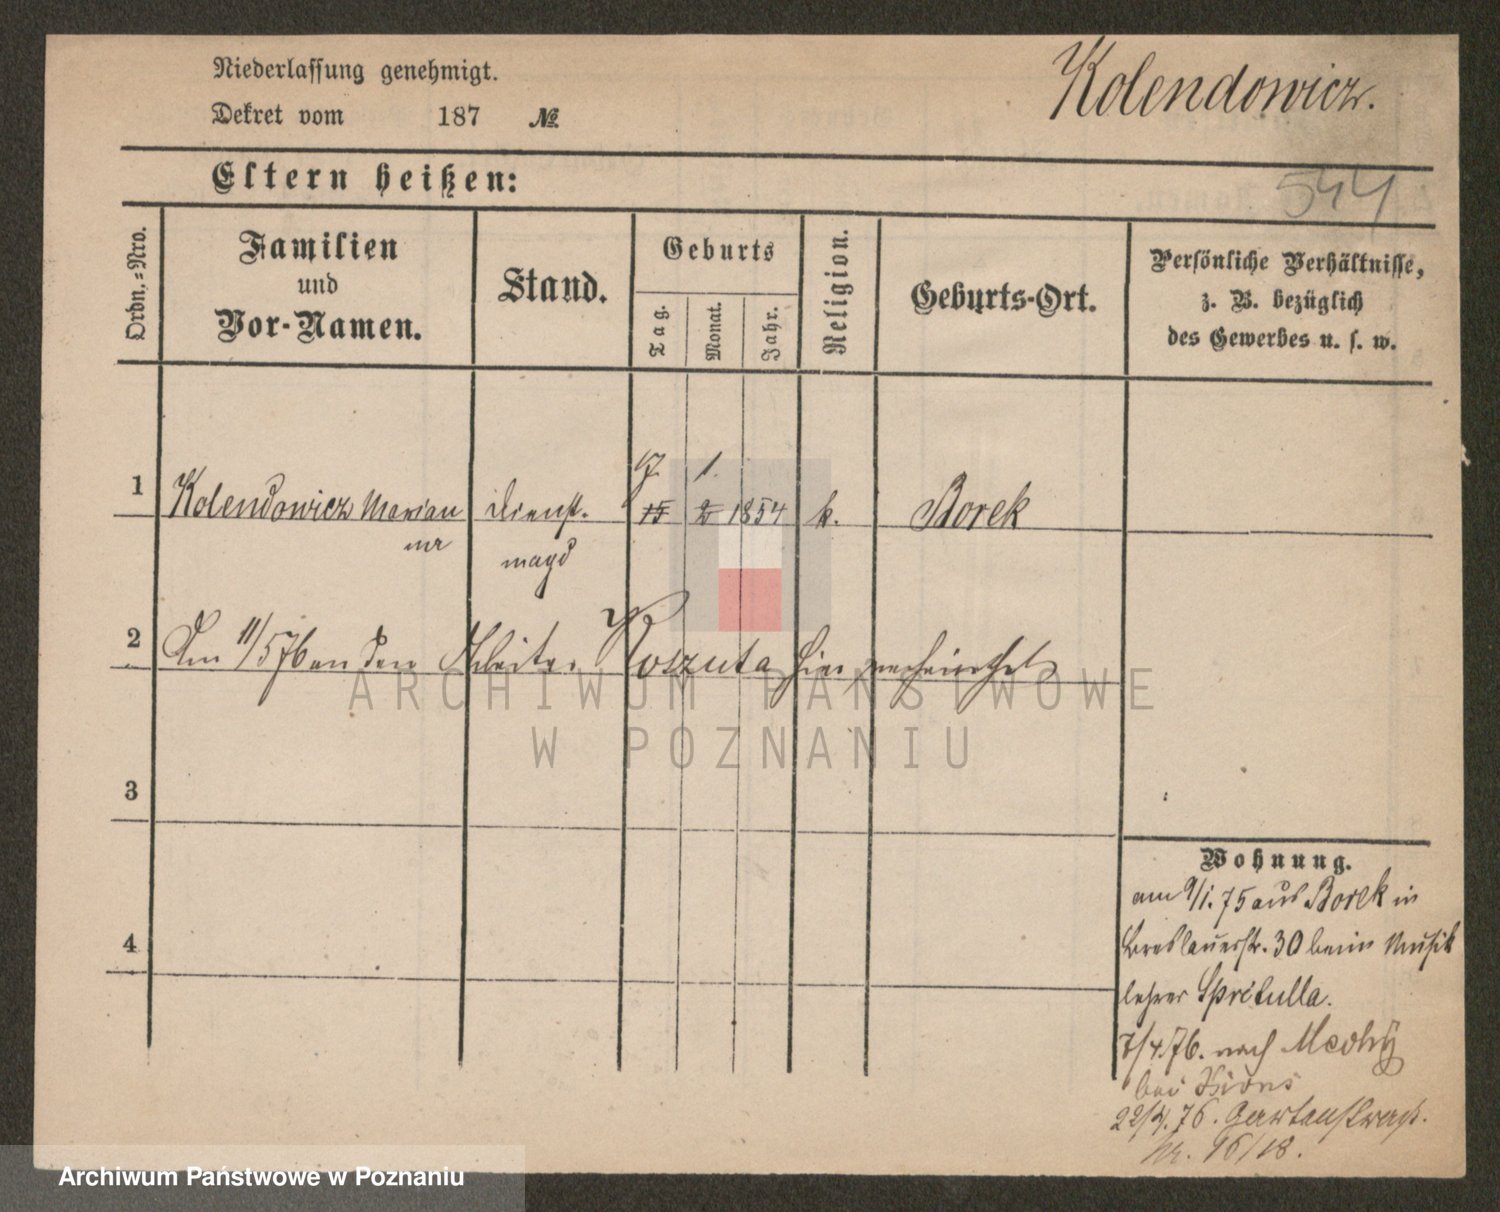 Niederlassung genehmigt.
Dekret vom 187 №
Kolendowicz.
544
Eltern heißen:
Ordn.-Nro.
Familien
und
Vor-Namen.
Stand.
Geburts
Tag.
Monat.
Jahr.
Religion.
Geburts-Ort.
Persönliche Verhältnisse,
z. B. bezüglich
des Gewerbes u. s. w.
7. 1.
1 Kolendowicz Marian Dienst- 15 2 1854 k. Borek
na magd
2 Am 11/5 76 an den Arbeiter Koszuta hier verheirathet
ARCHIWUM PAŃSTWOWE
W POZNANIU
3
4
Wohnung.
am 9/1. 75 aus Borek in
Breslauerstr. 30 beim Musik
lehrer Spritulla.
7/4. 76. nach
bei Xions
22/4. 76. Gartenstrass.
Nr. 16/18.
Archiwum Państwowe w Poznaniu